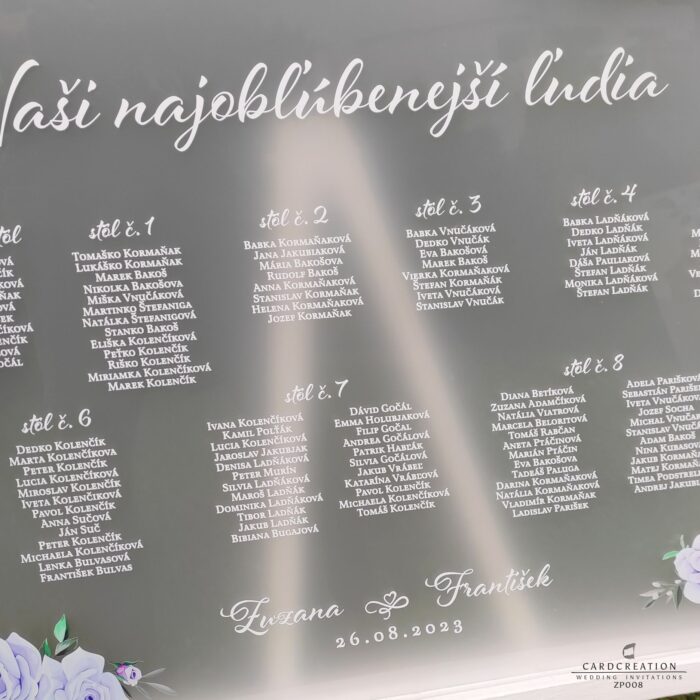 Naši najobľúbenejší ľudia
stôl č. 1
Tomaško Kormaňak
Lukáško Kormaňak
Marek Bakoš
Nikolka Bakošova
Miška Vnučáková
Martinko Štefaniga
Natálka Štefanigová
Stanko Bakoš
Eliška Kolenčíková
Peťko Kolenčík
Riško Kolenčík
Miriamka Kolenčíková
Marek Kolenčík
stôl č. 2
Babka Kormaňaková
Jana Jakubiaková
Mária Bakošova
Rudolf Bakoš
Anna Kormaňaková
Stanislav Kormaňak
Helena Kormaňaková
Jozef Kormaňak
stôl č. 3
Babka Vnučáková
Dedko Vnučák
Eva Bakošová
Marek Bakoš
Vierka Kormaňaková
Štefan Kormaňak
Iveta Vnučáková
Stanislav Vnučák
stôl č. 4
Babka Ladňáková
Dedko Ladňák
Iveta Ladňáková
Ján Ladňák
Dáša Pauliaková
Štefan Ladňák
Monika Ladňáková
Štefan Ladňák
stôl č. 6
Dedko Kolenčík
Marta Kolenčíková
Peter Kolenčík
Lucia Kolenčíková
Miroslav Kolenčík
Iveta Kolenčíková
Pavol Kolenčík
Anna Sučová
Ján Suč
Peter Kolenčík
Michaela Kolenčíková
Lenka Bulvasová
František Bulvas
stôl č. 7
Ivana Kolenčíková
Kamil Polťák
Lucia Kolenčíková
Jaroslav Jakubjak
Denisa Ladňáková
Peter Murín
Silvia Ladňáková
Maroš Ladňák
Dominika Ladňáková
Tibor Ladňák
Jakub Ladňák
Bibiana Bugajová
Dávid Gočál
Emma Holubjaková
Filip Gočal
Andrea Gočálová
Patrik Habľák
Silvia Gočálová
Jakub Vrábeľ
Katarína Vrábľová
Pavol Kolenčík
Michaela Kolenčíková
Tomáš Kolenčík
stôl č. 8
Diana Betíková
Zuzana Adamčíková
Natália Viatrová
Marcela Belobrtová
Tomáš Rabčan
Aneta Ptáčinová
Marián Ptáčin
Eva Bakošová
Tadeáš Paluga
Darina Kormaňaková
Natália Kormaňaková
Vladimír Kormaňak
Ladislav Parišek
Adela Parišková
Sebastián
Iveta
Jozef
Michal
Stanislav
Adam
Nina
Jakub
Matej
Timea
Andrej
Zuzana František
26.08.2023
CARDCREATION
WEDDING INVITATIONS
ZP008